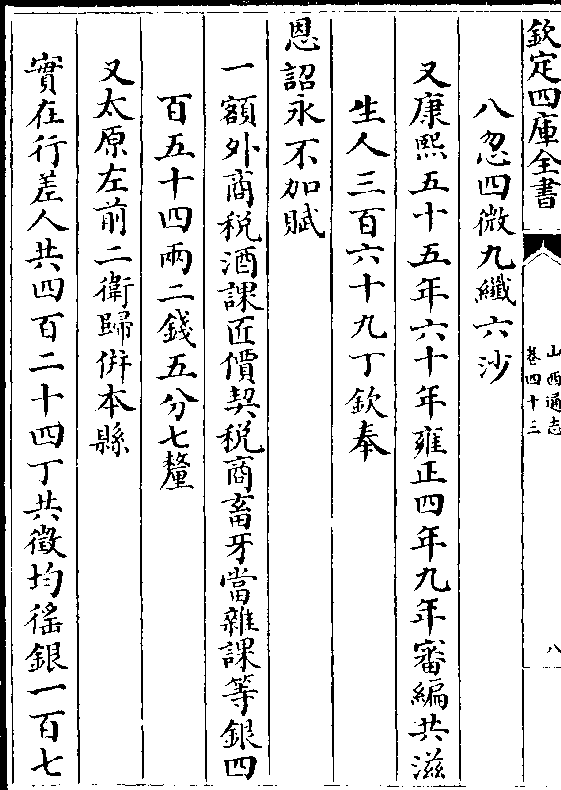 欽定四庫全書
山西通志
卷四十三
八
八忽四微九纖六沙
又康熙五十五年六十年雍正四年九年審編共滋
生人三百六十九丁欽奉
恩詔永不加賦
一額外商稅酒課匠價契稅商畜牙當雜課等銀四
百五十四兩二錢五分七釐
又太原左前二衛歸併本縣
實在行差人共四百二十四丁共徵均徭銀一百七